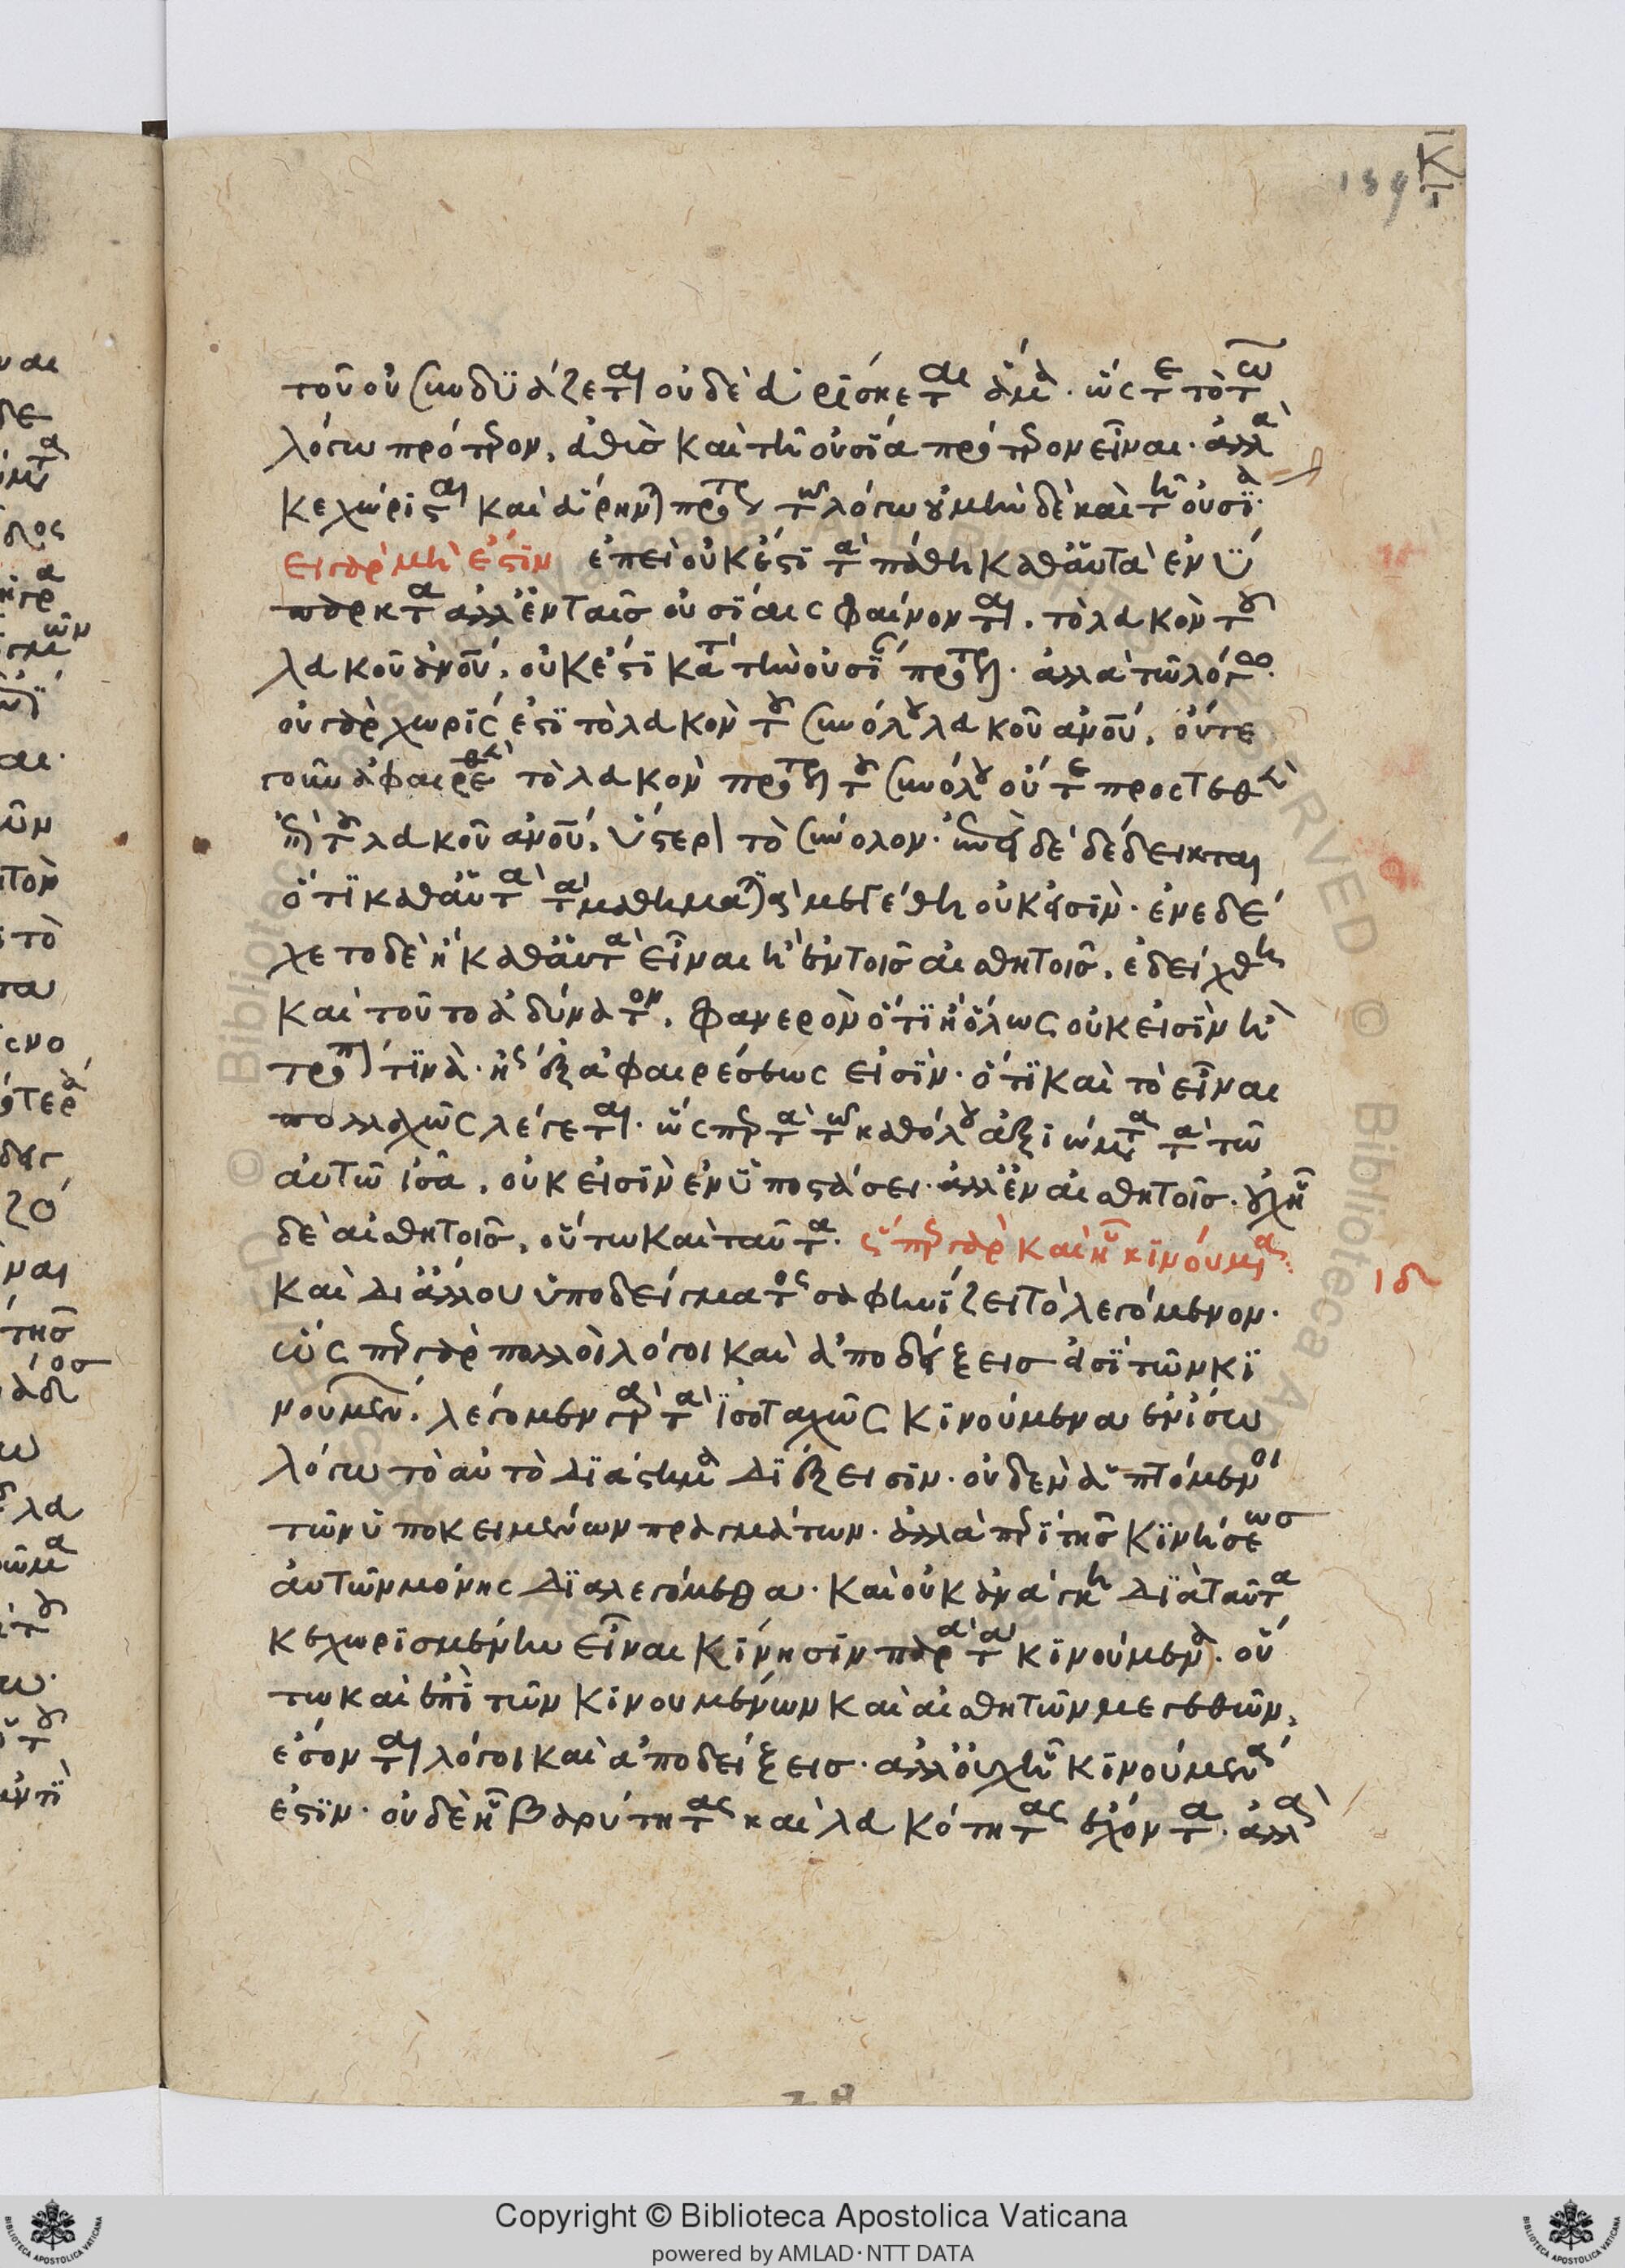 189
τοῦ οὐ συνδυάζεται οὐδὲ εὑρίσκεται ἅμα. ὥστε τὸ τῶ
λόγω πρότερον, εὐθὺς καὶ τῆ οὐσία πρότερον εἶναι. ἀλλὰ
κεχώρισται καὶ διήρηνται πρότερον τῶ λόγω οὐ μὴν δὲ καὶ τῆ οὐσία.
ει γὰρ μὴ ἔστιν ἐπεὶ οὐκ ἔστι τὰ πάθη καθ αὑτὰ ἐν ὑ
παρκτα ἀλλ ἐν ταῖς οὐσίαις φαίνονται. τὸ λευκὸν τοῦ
λευκοῦ ἀνου, οὐκ ἔστι κατὰ τὴν οὐσίαν πρότερον. ἀλλὰ τῶ λόγω.
οὐ γὰρ χωρίς ἐστι τὸ λευκὸν τοῦ συνόλου λευκοῦ ανου, οὔτε
γοῦν ἀφαιρεθὲν τὸ λευκὸν πρότερον τοῦ συνόλου οὔτε προστεθὲν
τοῦ λευκοῦ ανου, ὕστερον τὸ σύνολον. δὲ δέδεικται
ὅτι καθ αὑτὰ τὰ μαθηματικὰ μεγέθη οὐκ εἰσὶν. ἐνεδέ
χετο δὲ ἢ καθ αὑτὰ εἶναι ἢ ἐν τοῖς αἰσθητοῖς, ἐδείχθη
καὶ τοῦτο ἀδύνατον, φανερὸν ὅτι ἢ ὅλως οὐκ εἰσὶν ἢ
τρόπον τινὰ. ἤγουν ἐξ ἀφαιρέσεως εἰσὶν. ὅτι καὶ τὸ εἶναι
πολλαχῶς λέγεται. ὥσπερ τὰ τῶ καθόλου ἀξιώματα τὰ τῶ
αὐτῶ ἴσα, οὐκ εἰσὶν ἐν ὑποστάσει. ἀλλ ἐν αἰσθητοῖς. οὐχ ἧ
δὲ αἰσθητοῖς, οὕτω καὶ ταῦτα. ὥσπερ γὰρ καὶ ἧ κινούμενα.
ιδ
καὶ δι ἄλλου ὑποδείγματος σαφηνίζει τὸ λεγόμενον.
ὥσπερ γὰρ πολλοὶ λόγοι καὶ ἀποδείξεις εἰσὶ τῶν κι
νουμένων. λέγομεν γὰρ τὰ ἰσοταχῶς κινούμενα ἐν ἴσω
λόγω τὸ αὐτὸ διάστημα διέξεισιν. οὐδὲν ἁπτόμενοι
τῶν ὑποκειμένων πραγμάτων. ἀλλὰ περὶ τῆς κινήσεως
αὐτῶν μόνης διαλεγόμεθα. καὶ οὐκ ἀνάγκη διὰ ταῦτα
κεχωρισμένην εἶναι κίνησιν παρὰ τὰ κινούμενα. οὕ
τω καὶ ἐπὶ τῶν κινουμένων καὶ αἰσθητῶν μεγεθῶν,
ἔσονται λόγοι καὶ ἀποδείξεις. ἀλλ οὐχ ἧ κινούμενά
ἐστιν. οὐδὲ ἧ βαρύτητας καὶ λευκότητας ἔχοντα. ἀλλὰ
Copyright © Biblioteca Apostolica Vaticana
powered by AMLAD·NTT DATA